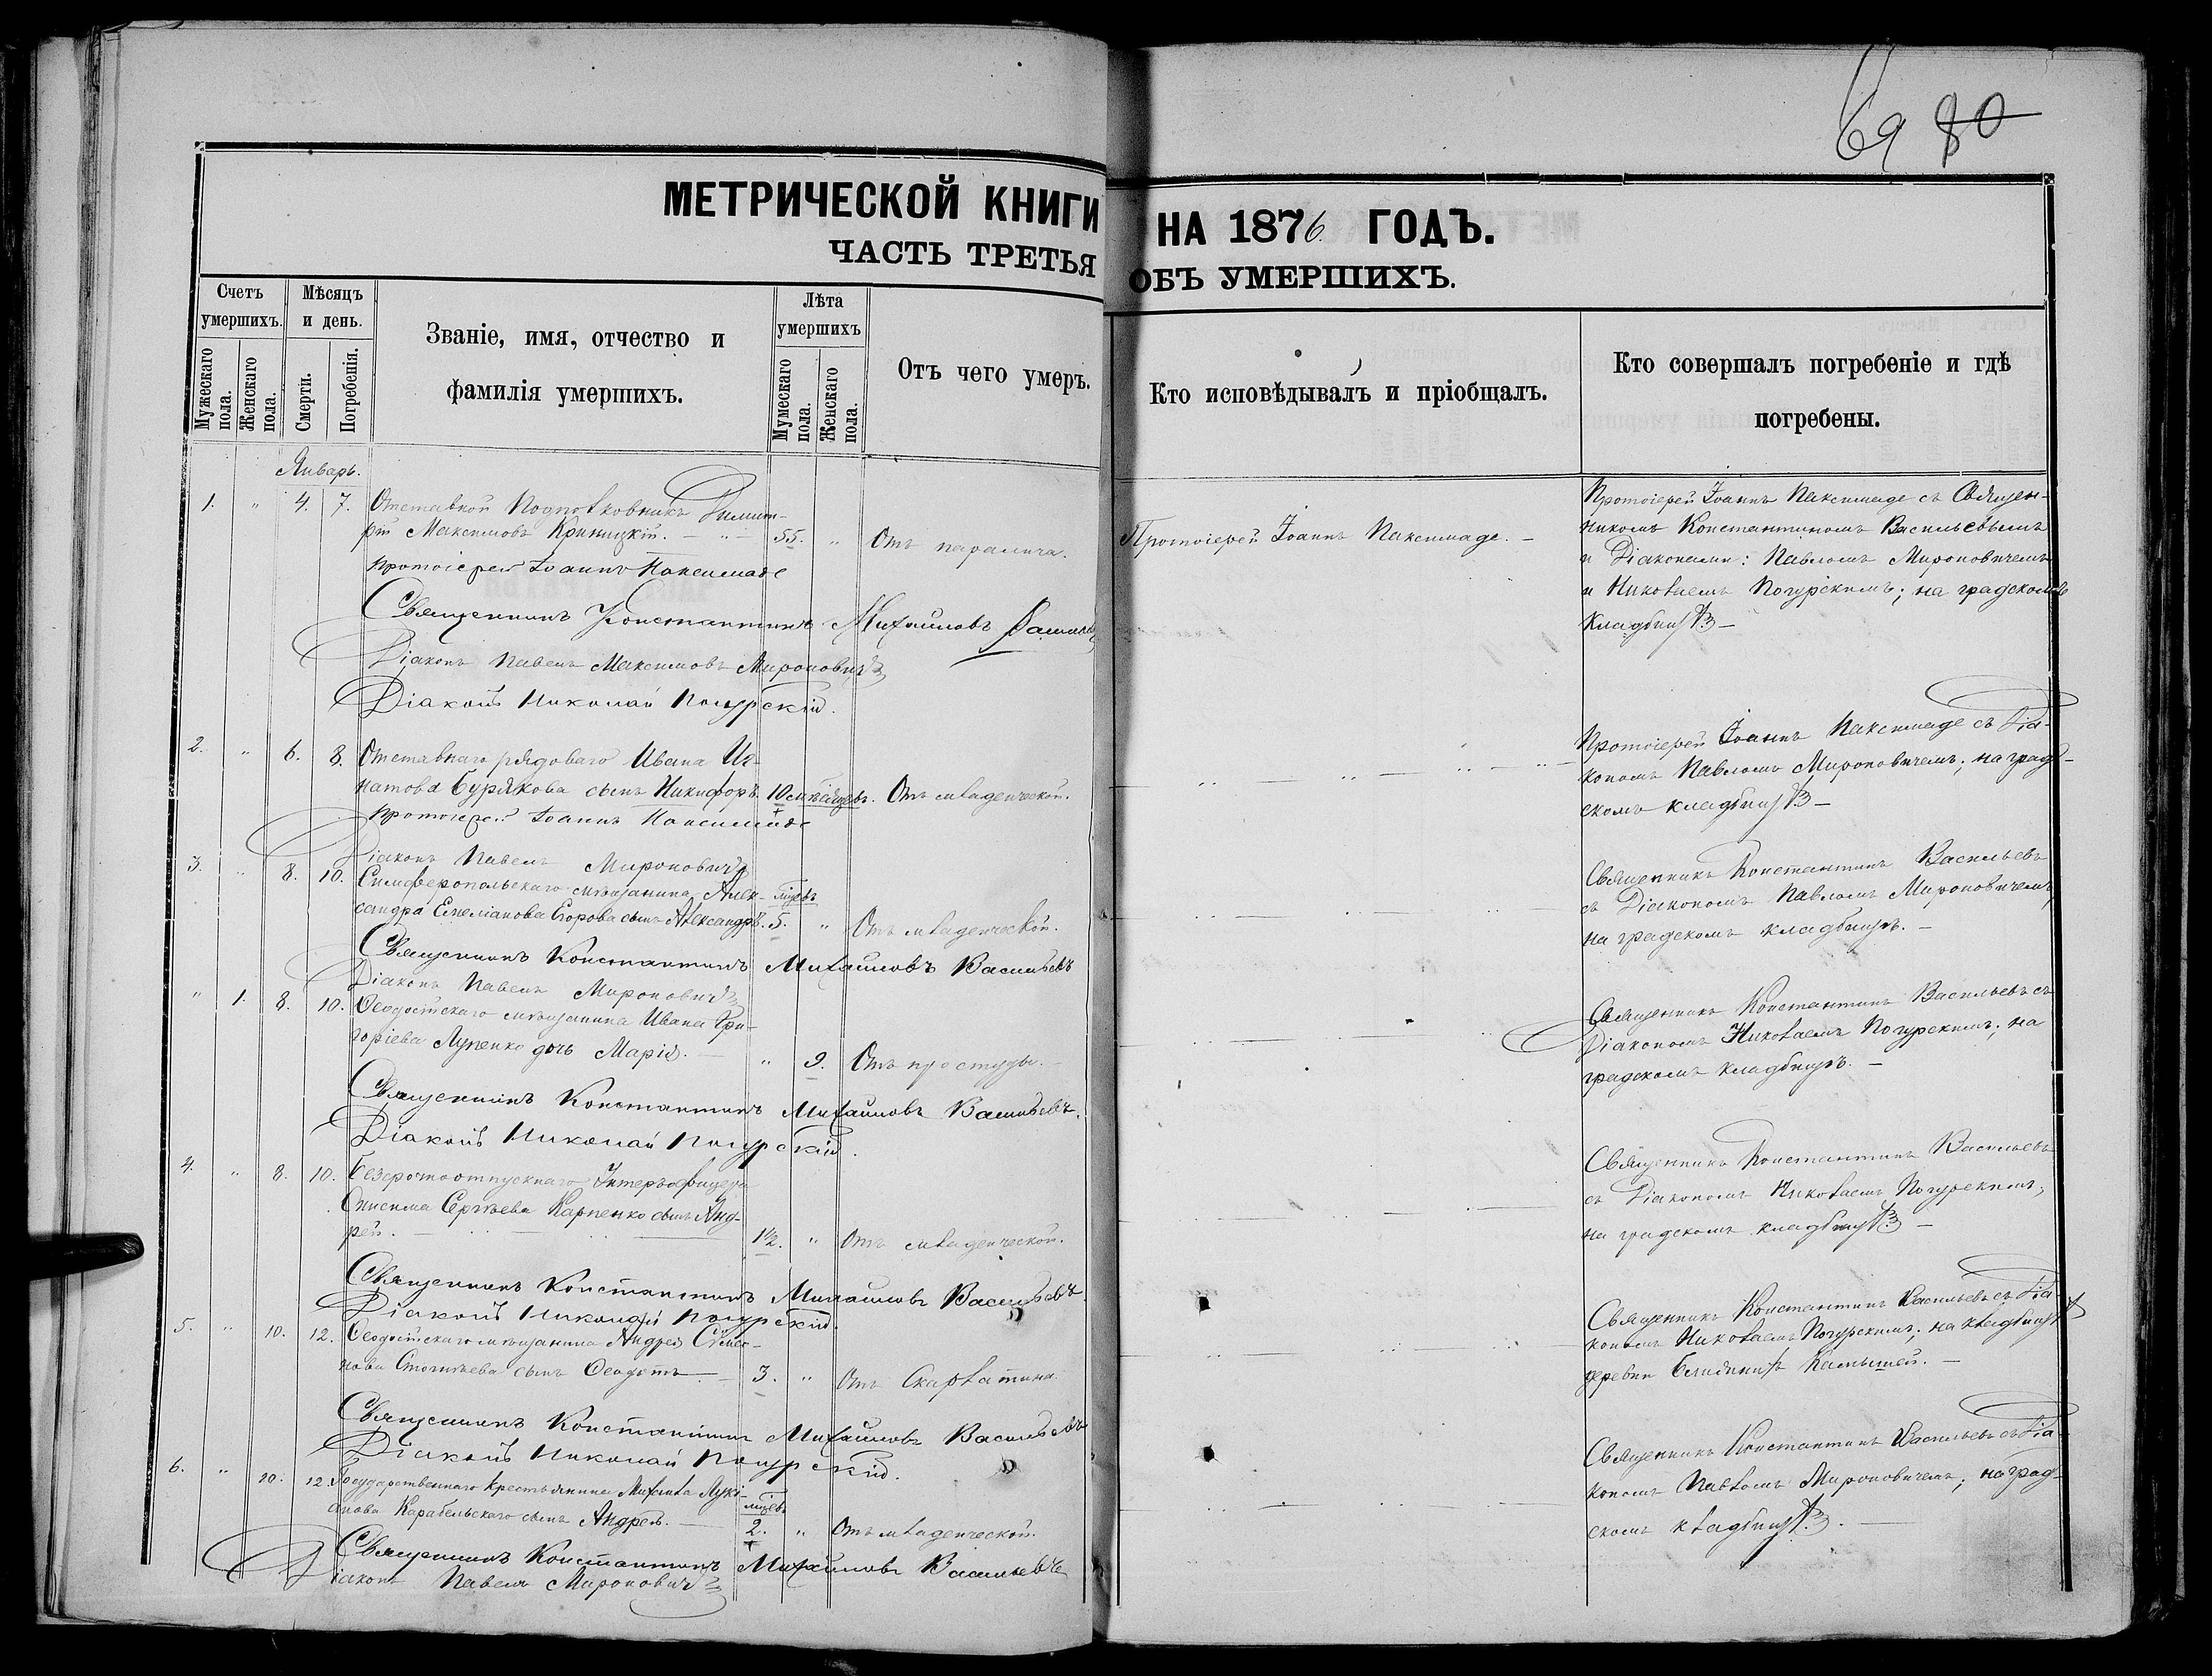 69 80
МЕТРИЧЕСКОЙ КНИГИ НА 1876 ГОДЪ.
ЧАСТЬ ТРЕТЬЯ ОБЪ УМЕРШИХЪ.
Счетъ умершихъ.
Мужескаго пола.
Женскаго пола.
Мѣсяцъ и день.
Смерти.
Погребенія.
Званіе, имя, отчество и
фамилія умершихъ.
Лѣта умершихъ
Мужескаго пола.
Женскаго пола.
Отъ чего умеръ.
Кто исповѣдывалъ и пріобщалъ.
Кто совершалъ погребеніе и гдѣ
погребены.
Январь.
1. " 4. 7. Отставной Подполковникъ Димит-
рій Максимовъ Криницкій. 55. " Отъ паралича.
Протоіерей Іоаннъ Паксимаде.
Протоіерей Іоаннъ Паксимаде съ Священ-
никомъ Константиномъ Васильевымъ
и Діаконами: Павломъ Мироновичемъ
и Николаемъ Погурскимъ; на градскомъ
кладбищѣ
Протоіерей Іоаннъ Паксимаде
Священникъ Константинъ Михаиловъ
Діаконъ Павелъ Максимовъ Мироновичъ
Діаконъ Николай Погурскій.
2. " 6. 8. Отставнаго рядоваго Ивана Иг-
натова Бурякова сынъ Никифоръ. 10 мѣсяцевъ. Отъ младенческой.
Протоіерей Іоаннъ Паксимаде съ Діа-
кономъ Павломъ Мироновичемъ; на град-
скомъ кладбищѣ
Протоіерей Іоаннъ Паксимаде
Діаконъ Павелъ Мироновичъ
3. " 8. 10. Симферопольскаго мѣщанина Алек-
сандра Емеліанова Егорова сынъ Александръ. 5. " Отъ младенческой.
Священникъ Константинъ Васильевъ
съ Діакономъ Павломъ Мироновичемъ,
на градскомъ кладбищѣ.
Священникъ Константинъ Михаиловъ Васильевъ
Діаконъ Павелъ Мироновичъ
" 1. 8. 10. Ѳеодосійскаго мѣщанина Ивана Гри-
горіева Лупенко дочь Марія. " 9. Отъ простуды.
Священникъ Константинъ Васильевъ съ
Діакономъ Николаемъ Погурскимъ; на
градскомъ кладбищѣ.
Священникъ Константинъ Михаиловъ Васильевъ.
Діаконъ Николай Погурскій.
4. " 8. 10. Безсрочноотпускнаго Унтеръофицера
Онисима Сергѣева Карпенко сынъ Анд-
рей. 1½. " Отъ младенческой.
Священникъ Константинъ Васильевъ
съ Діакономъ Николаемъ Погурскимъ;
на градскомъ кладбищѣ
Священникъ Константинъ Михаиловъ Васильевъ.
Діаконъ Николай Погурскій.
5. " 10. 12. Ѳеодосійскаго мѣщанина Андрея
сынъ Ѳеодотъ 3. " Отъ Скарлатина.
Священникъ Константинъ Васильевъ съ Діа-
кономъ Николаемъ Погурскимъ; на кладбищѣ
деревни Камышей.
Священникъ Константинъ Михаиловъ Васильевъ
Діаконъ Николай Погурскій.
6. " 10. 12. Государственнаго Крестьянина Михаила Луки-
анова Карабельскаго сынъ Андрей. 2. " Отъ младенческой.
Священникъ Константинъ Васильевъ съ Діа-
кономъ Павломъ Мироновичемъ; на град-
скомъ кладбищѣ.
Священникъ Константинъ Михаиловъ Васильевъ
Діаконъ Павелъ Мироновичъ